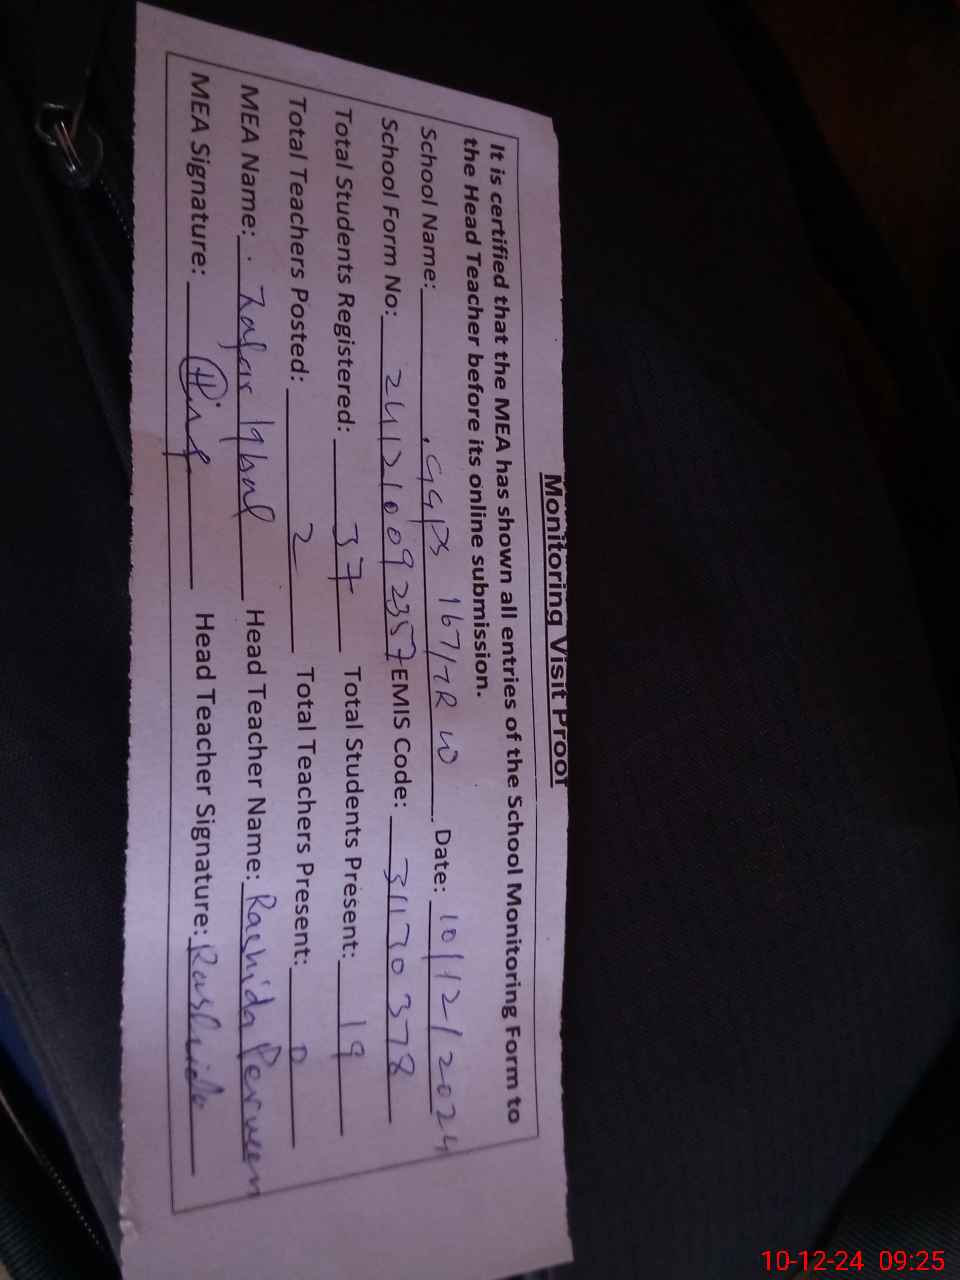 Monitoring Visit Proof
It is certified that the MEA has shown all entries of the School Monitoring Form to
the Head Teacher before its online submission.
School Name: GGPS 167/7R W Date: 10/12/2024
School Form No: 241210092357 EMIS Code: 31170378
Total Students Registered: 37 Total Students Present: 19
Total Teachers Posted: 2 Total Teachers Present: 0
MEA Name: Zafar Iqbal Head Teacher Name: Rashida Perveen
MEA Signature: Head Teacher Signature: Rashida
10-12-24 09:25